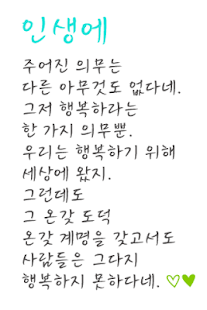 인생에
주어진 의무는
다른 아무것도 없다네.
그저 행복하라는
한 가지 의무뿐.
우리는 행복하기 위해
세상에 왔지.
그런데도
그 온갖 도덕
온갖 계명을 갖고서도
사람들은 그다지
행복하지 못하다네. ♡♥